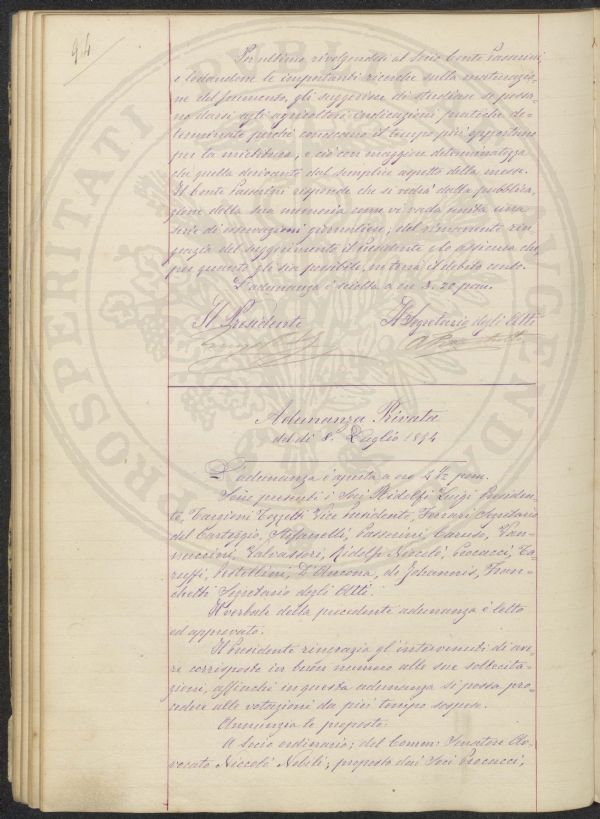 94
In ultimo rivolgendosi al Socio Conte Passerini,
e lodandone le importanti ricerche sulla maturazio=
ne del frumento, gli suggerisce di studiare se possa=
no darsi agli agricoltori indicazioni pratiche de=
terminate perchè conoscano il tempo più opportuno
per la mietitura, e ciò con maggiore determinatezza
che quella derivante dal semplice aspetto della messe.
Il Conte Passerini risponde che si vedrà dalla pubblica=
zione della sua memoria come vi vada unita una
serie di osservazioni giornaliere; del rimanente rin=
grazia del suggerimento il Presidente e lo assicura che,
per quanto gli sia possibile, ne terrà il debito conto.
L'adunanza è sciolta a ore 3.20 pom.
Il Presidente Il Segretario degli Atti
Adunanza Privata
del dì 8. Luglio 1894
L'adunanza è aperta a ore 2 1/2 pom.
Sono presenti i Soci Ridolfi Luigi Presiden=
te, Targioni Tozzetti Vice Presidente, Ferrari Segretario
del Carteggio, Stefanelli, Passerini, Caruso, Van=
nuccini, Valvassori, Ridolfi Niccolò, Procacci, Ca=
ruffi, Pestellini, D'Ancona, de Johannis, Fran=
chetti Segretario degli Atti.
Il verbale della precedente adunanza è letto
ed approvato.
Il Presidente ringrazia gl'intervenuti di ave=
re corrisposto in buon numero alle sue sollecita=
zioni, affinchè in questa adunanza si possa pro=
cedere alle votazioni da più tempo sospese.
Annunzia le proposte:
A socio ordinario; del Comm: Senatore Av=
vocato Niccolò Nobili; proposto dai Soci Procacci,
PROSPERITATI PUBLICAE AUGENDAE